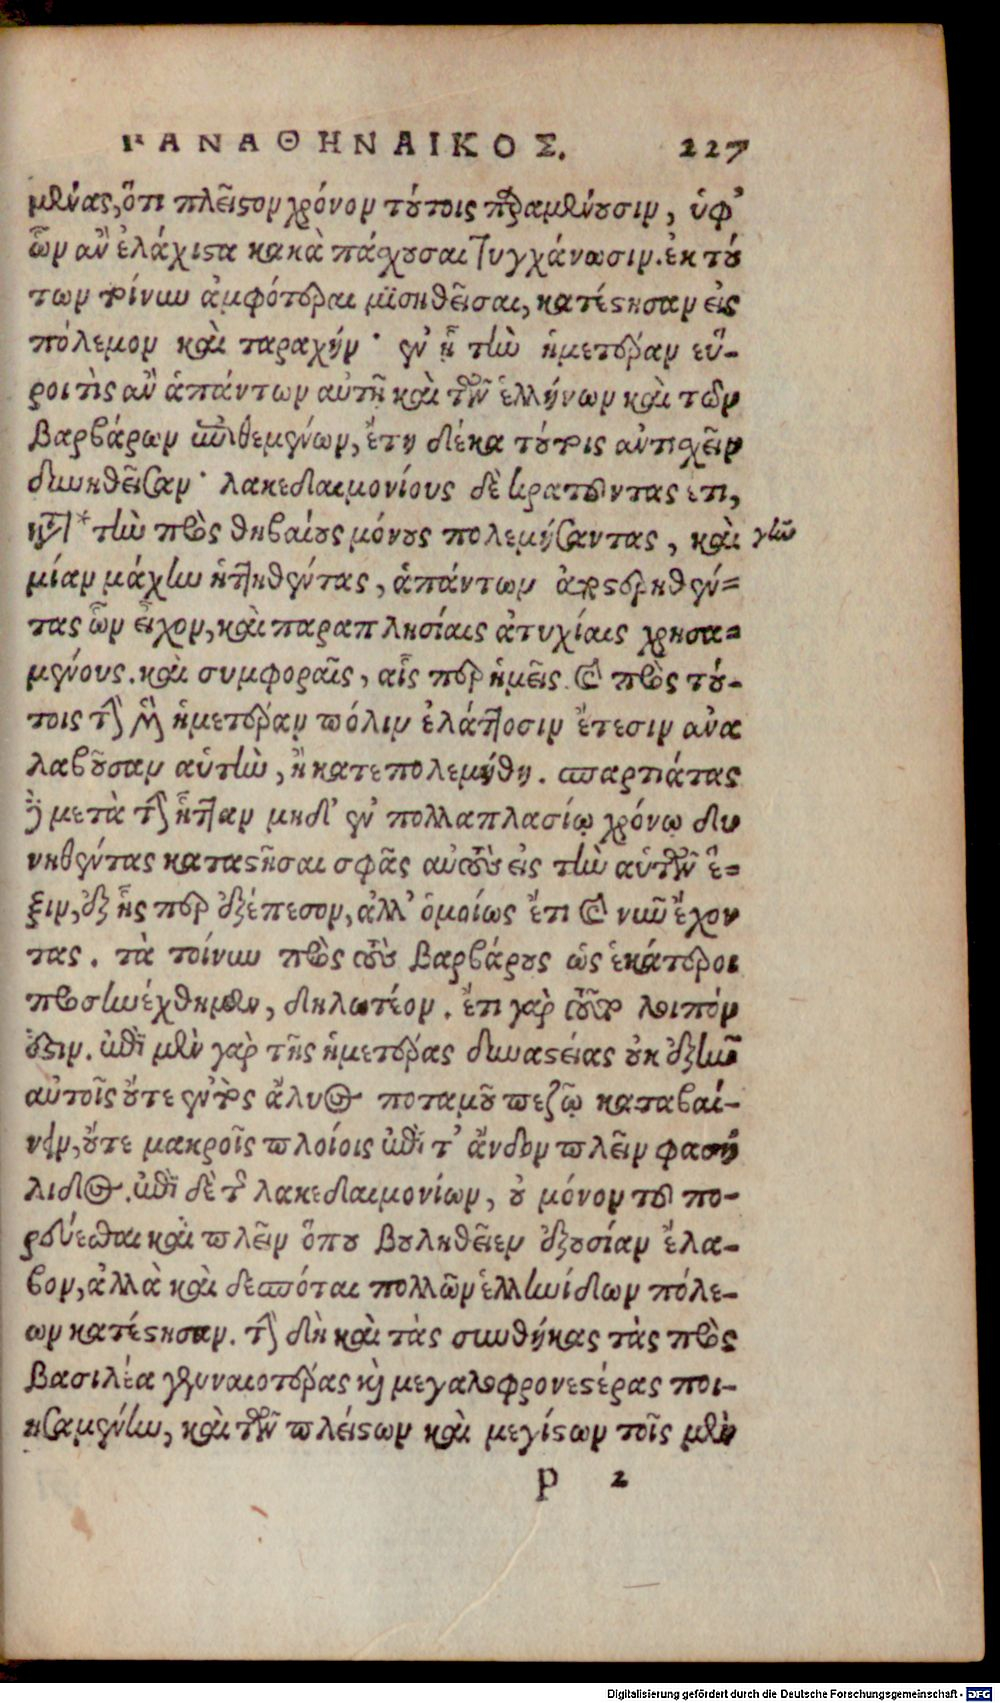 ΠΑΝΑΘΗΝΑΙΚΟΣ. 227
μένας, ὅτι πλεῖστον χρόνον τούτοις παραμένουσιν, ὑφ'
ὧν ἂν ἐλάχιστα κακὰ πάσχουσαι τυγχάνωσιν. ἐκ τού
των τοίνυν ἀμφότεραι μισηθεῖσαι, κατέστησαν εἰς
πόλεμον καὶ ταραχήν· ἐν ᾗ τὴν ἡμετέραν εὕ-
ροι τὶς ἂν ἁπάντων αὐτῇ καὶ τῶν ἑλλήνων καὶ τῶν
βαρβάρων ἐπιθεμένων, ἔτη δέκα τούτοις ἀντισχεῖν
δυνηθεῖσαν· λακεδαιμονίους δὲ κρατοῦντας ἔτι,
κατὰ* τὴν πρὸς θηβαίους μόνους πολεμήσαντας, καὶ γῆν
μίαν μάχην ἡττηθέντας, ἁπάντων ἀποστερηθέν=
τας ὧν εἶχον, καὶ παραπλησίαις ἀτυχίαις χρησα=
μένους. καὶ συμφοραῖς, αἷς περ ἡμεῖς. καὶ πρὸς τού-
τοις τὴν μὲν ἡμετέραν πόλιν ἐλάττοσιν ἔτεσιν ἀνα
λαβοῦσαν αὑτὴν, ἢ κατεπολεμήθη. σπαρτιάτας
δὲ μετὰ τὴν ἧτταν μηδ' ἐν πολλαπλασίῳ χρόνῳ δυ
νηθέντας καταστῆσαι σφᾶς αὐτοὺς εἰς τὴν αὑτῶν ἕ=
ξιν, ἐξ ἧς περ ἐξέπεσον, ἀλλ' ὁμοίως ἔτι καὶ νῦν ἔχον
τας. τὰ τοίνυν πρὸς τοὺς βαρβάρους ὡς ἑκάτεροι
προσηνέχθημεν, δηλωτέον. ἔτι γὰρ τοῦτο λοιπόν
ἐστιν. ἐπὶ μὲν γὰρ τῆς ἡμετέρας δυναστείας οὐκ ἐξῆν
αὐτοῖς οὔτε ἐντὸς ἅλυος ποταμοῦ πεζῷ καταβαί-
νειν, οὔτε μακροῖς πλοίοις ἐπὶ τ' ἄνδον πλεῖν φαση
λιδος. ἐπὶ δὲ τῆς λακεδαιμονίων, οὐ μόνον τοῦ πο-
ρεύεσθαι καὶ πλεῖν ὅπου βουληθεῖεν ἐξουσίαν ἔλα-
βον, ἀλλὰ καὶ δεσπόται πολλῶν ἑλληνίδων πόλε-
ων κατέστησαν. τὴν δὴ καὶ τὰς συνθήκας τὰς πρὸς
βασιλέα γενναιοτέρας καὶ μεγαλοφρονεστέρας ποι-
ησαμένην, καὶ τῶν πλείστων καὶ μεγίστων τοῖς μὲν
p 2
Digitalisierung gefördert durch die Deutsche Forschungsgemeinschaft - DFG